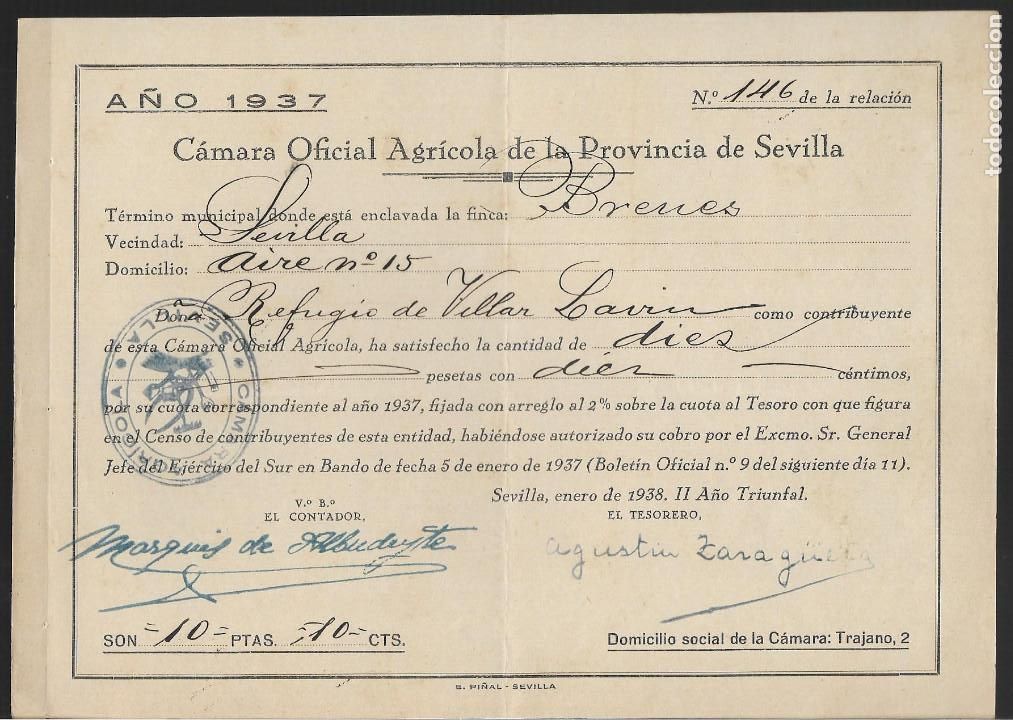 AÑO 1937
N.º 146 de la relación
Cámara Oficial Agrícola de la Provincia de Sevilla
Término municipal donde está enclavada la finca: Brenes
Vecindad: Sevilla
Domicilio: Aire nº 15
Doña Refugio de Villar Lavin como contribuyente
de esta Cámara Oficial Agrícola, ha satisfecho la cantidad de diez
pesetas con diez céntimos,
por su cuota correspondiente al año 1937, fijada con arreglo al 2% sobre la cuota al Tesoro con que figura
en el Censo de contribuyentes de esta entidad, habiéndose autorizado su cobro por el Excmo. Sr. General
Jefe del Ejército del Sur en Bando de fecha 5 de enero de 1937 (Boletín Oficial n.º 9 del siguiente día 11).
Sevilla, enero de 1938. II Año Triunfal.
V.º B.º
EL CONTADOR,
EL TESORERO,
Marqués de
Agustin Zaragüeta
SON =10= PTAS. =10= CTS.
Domicilio social de la Cámara: Trajano, 2
E. PIÑAL - SEVILLA
CAMARA AGRICOLA SEVILLA
todocoleccion